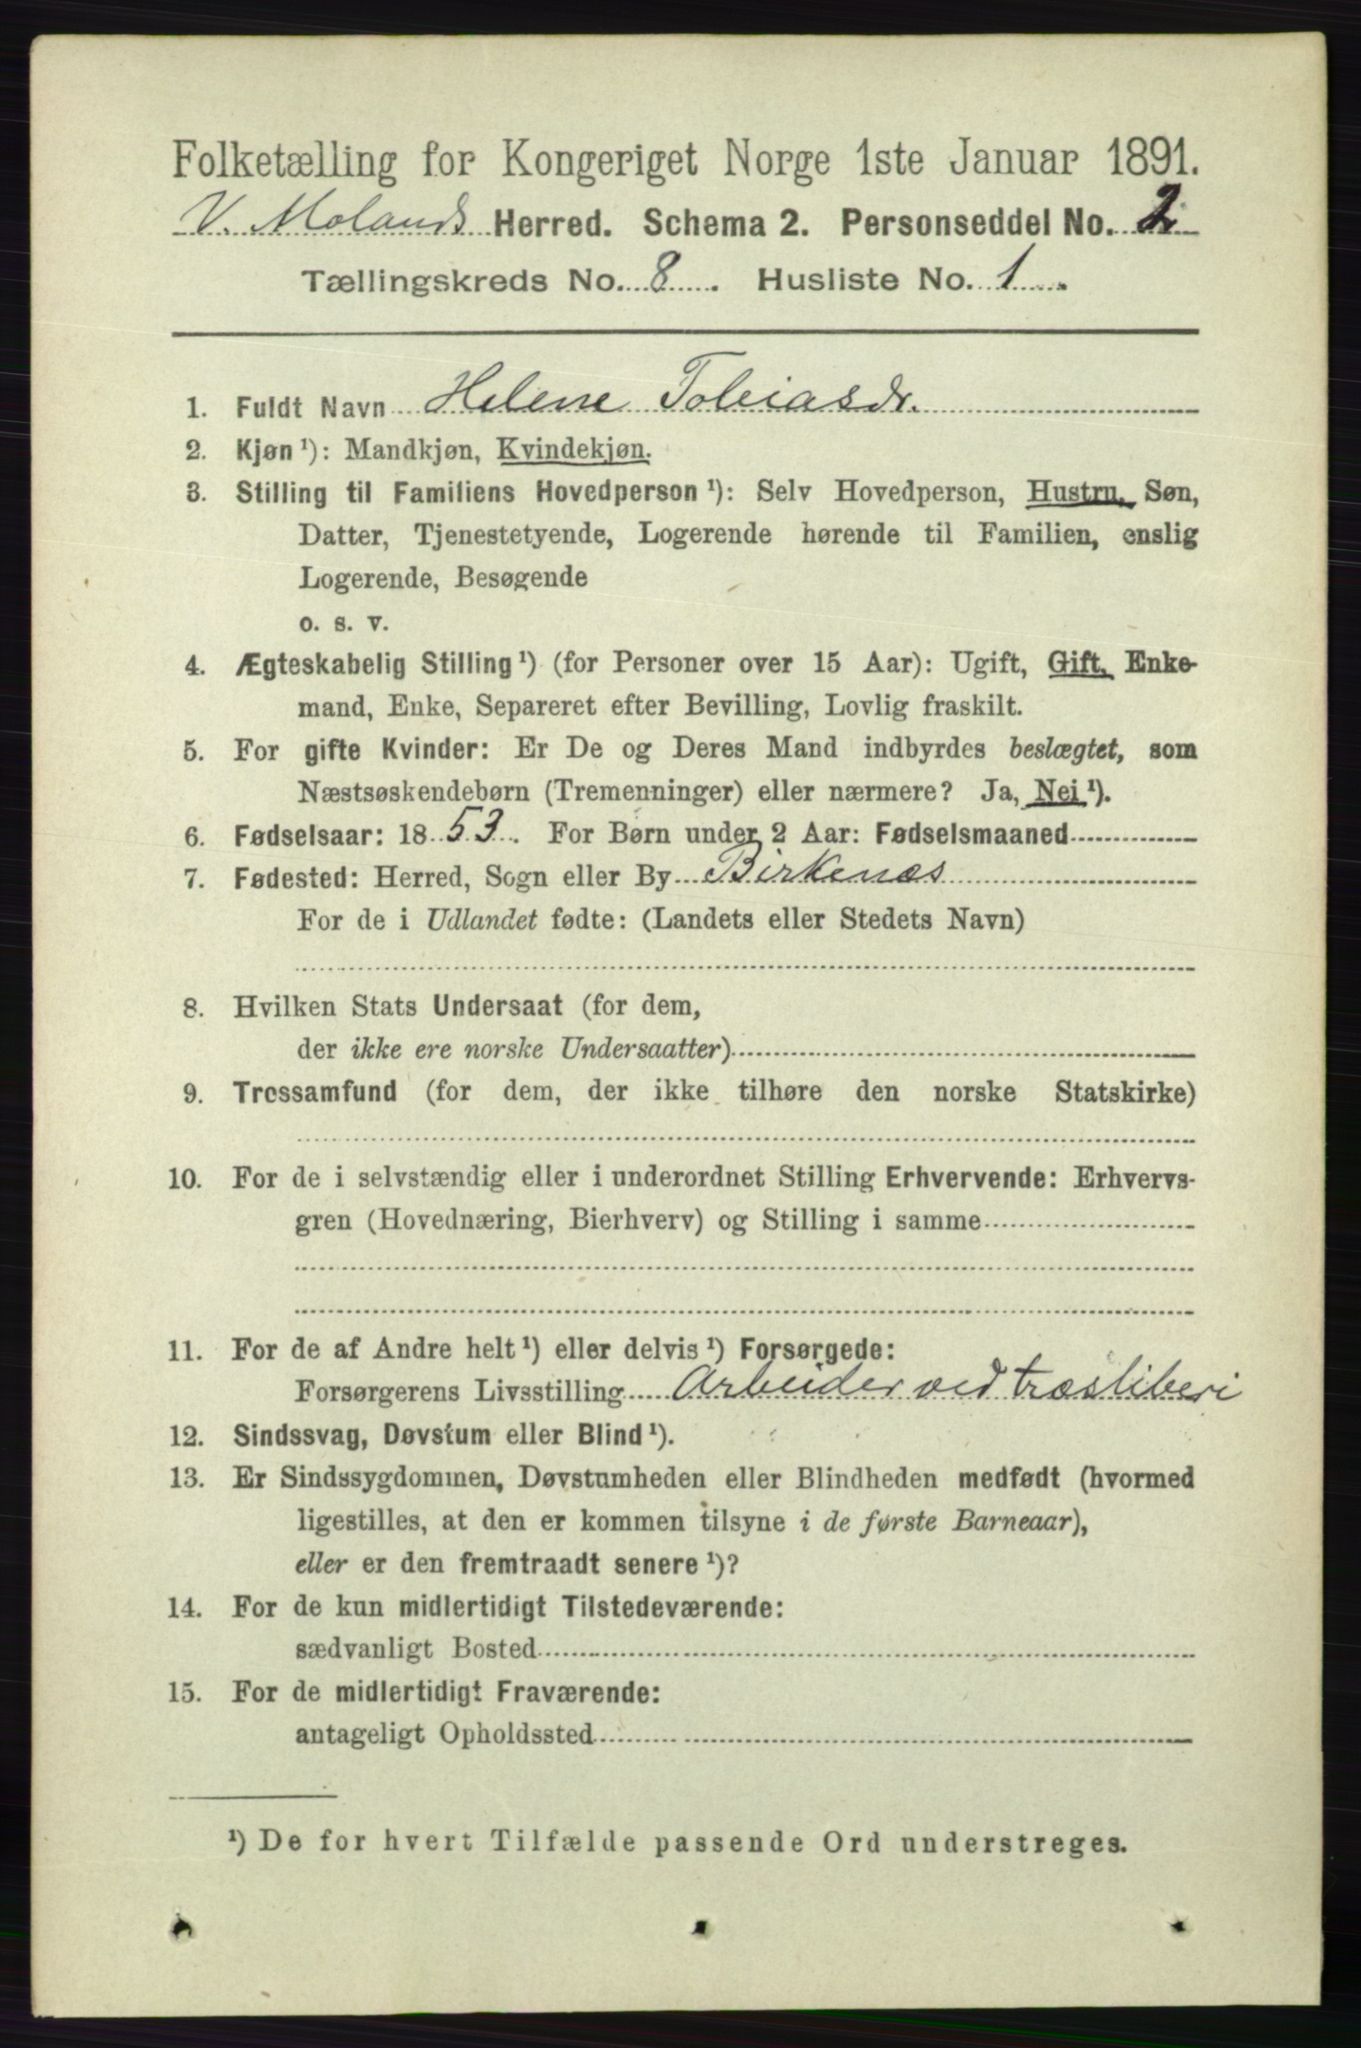 Folketælling for Kongeriget Norge 1ste Januar 1891.
V. Molands Herred. Schema 2. Personseddel No. 2
Tællingskreds No. 8. Husliste No. 1.
1. Fuldt Navn Helene Tobiasdr.
2. Kjøn ¹): Mandkjøn, Kvindekjøn.
3. Stilling til Familiens Hovedperson ¹): Selv Hovedperson, Hustru, Søn,
Datter, Tjenestetyende, Logerende hørende til Familien, enslig
Logerende, Besøgende
o. s. v.
4. Ægteskabelig Stilling ¹) (for Personer over 15 Aar): Ugift, Gift, Enke-
mand, Enke, Separeret efter Bevilling, Lovlig fraskilt.
5. For gifte Kvinder: Er De og Deres Mand indbyrdes beslægtet, som
Næstsøskendebørn (Tremenninger) eller nærmere? Ja, Nei ¹).
6. Fødselsaar: 1853. For Børn under 2 Aar: Fødselsmaaned
7. Fødested: Herred, Sogn eller By Birkenæs
For de i Udlandet fødte: (Landets eller Stedets Navn)
8. Hvilken Stats Undersaat (for dem,
der ikke ere norske Undersaatter)
9. Trossamfund (for dem, der ikke tilhøre den norske Statskirke)
10. For de i selvstændig eller i underordnet Stilling Erhvervende: Erhvervs-
gren (Hovednæring, Bierhverv) og Stilling i samme
11. For de af Andre helt ¹) eller delvis ¹) Forsørgede:
Forsørgerens Livsstilling Arbeider ved træsliberi
12. Sindssvag, Døvstum eller Blind ¹).
13. Er Sindssygdommen, Døvstumheden eller Blindheden medfødt (hvormed
ligestilles, at den er kommen tilsyne i de første Barneaar),
eller er den fremtraadt senere ¹)?
14. For de kun midlertidigt Tilstedeværende:
sædvanligt Bosted
15. For de midlertidigt Fraværende:
antageligt Opholdssted
¹) De for hvert Tilfælde passende Ord understreges.